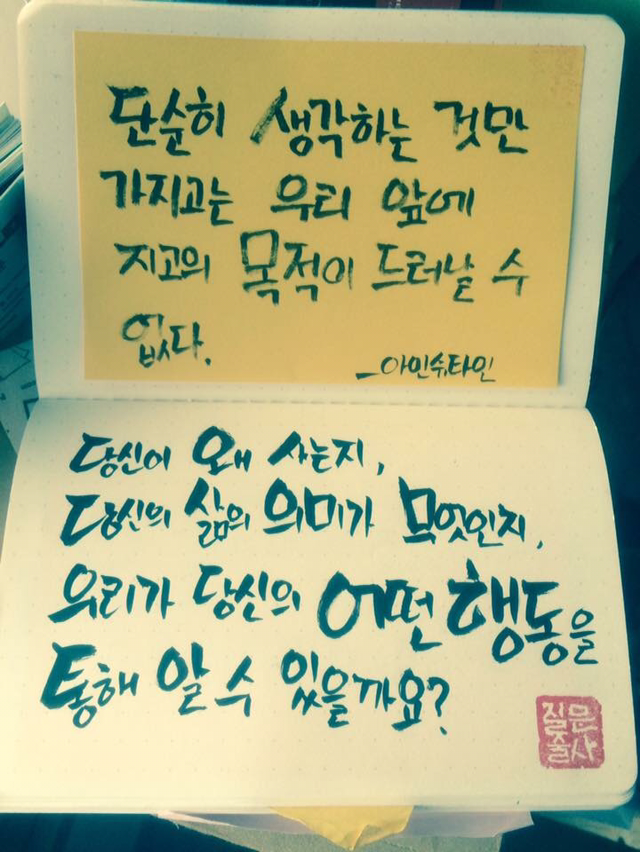 단순히 생각하는 것만
가지고는 우리 앞에
지고의 목적이 드러날 수
없다.
_아인슈타인
당신이 왜 사는지,
당신의 삶의 의미가 무엇인지,
우리가 당신의 어떤 행동을
통해 알 수 있을까요?
질문
술사